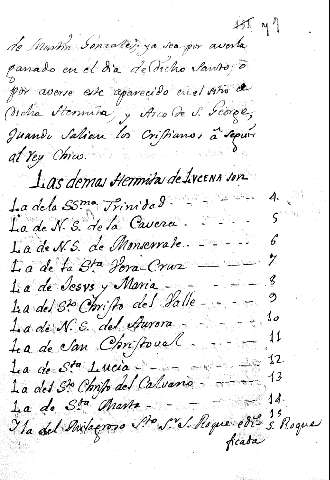 de Martin Gonzales; ya sea por averla
ganado en el dia de dicho Santo; ò
por averse este aparecido en el sitio de
dicha Hermita y Arco de S. George,
quando salieu los Cristianos, â seguir
al Rey Chico.
Las demas Hermitas de LUCENA son
La de la SSma Trinidad 4
La de N.S. de la Cavera 5
La de N.S. de Monserrate 6
La de la Sta Vera-Cruz 7
La de Jesvs y Maria 8
La del Sto Christo del Valle 9
La de N.S. del Aurora 10
La de San Christoval 11
La de Sta Lucia 12
La del Sto Christo del Calvario 13
La de Sta Marta 14
Y la del Milagroso Sto Sr S. Roque edi- 15 S. Roque
ficada